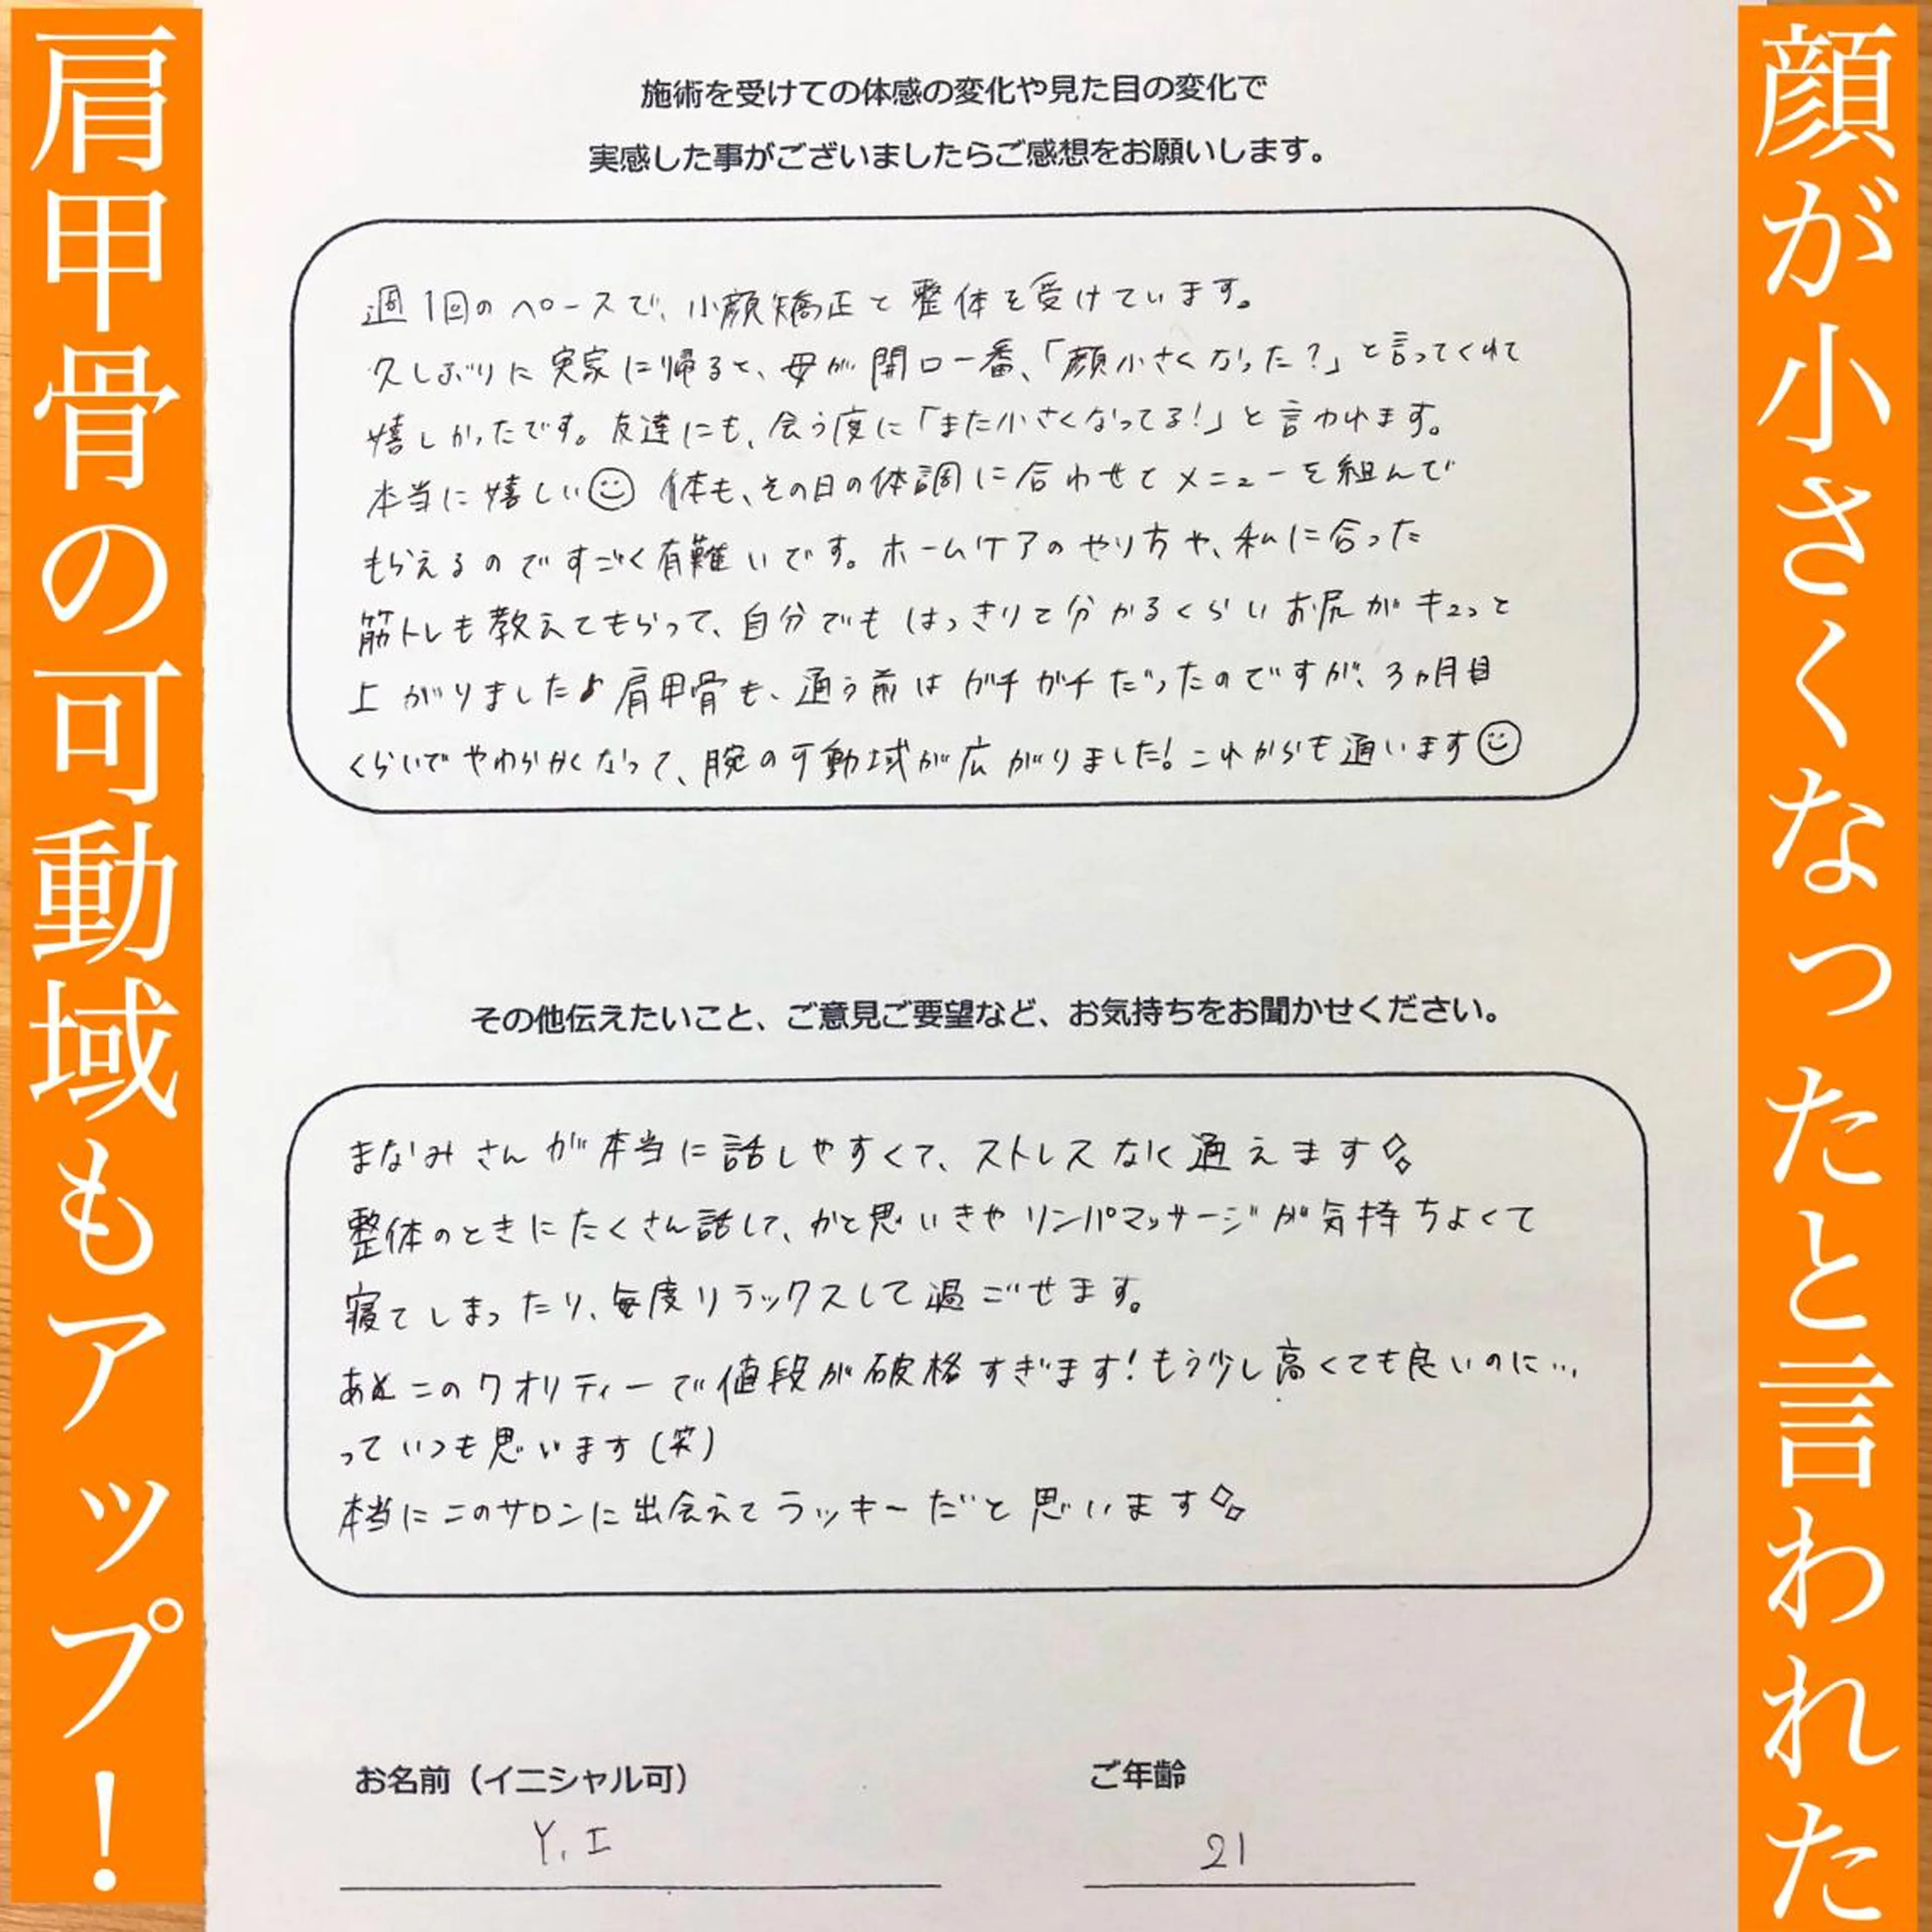 顔が小さくなったと言われた
肩甲骨の可動域もアップ！
施術を受けての体感の変化や見た目の変化で
実感した事がございましたらご感想をお願いします。
週1回のペースで、小顔矯正と整体を受けています。
久しぶりに実家に帰ると、母が開口一番、「顔小さくなった？」と言ってくれて
嬉しかったです。友達にも、会う度に「また小さくなってる！」と言われます。
本当に嬉しい☺ 体も、その日の体調に合わせてメニューを組んで
もらえるのですごく有難いです。ホームケアのやり方や、私に合った
筋トレも教えてもらって、自分でもはっきりと分かるくらいお尻がキュッと
上がりました♪肩甲骨も、通う前はガチガチだったのですが、3ヵ月目
くらいでやわらかくなって、腕の可動域が広がりました！これからも通います☺
その他伝えたいこと、ご意見ご要望など、お気持ちをお聞かせください。
まなみさんが本当に話しやすくて、ストレスなく通えます
整体のときにたくさん話して、かと思いきやリンパマッサージが気持ちよくて
寝てしまったり、毎度リラックスして過ごせます。
あとこのクオリティーで値段が破格すぎます！もう少し高くても良いのに…
っていつも思います(笑)
本当にこのサロンに出会えてラッキーだと思います
お名前（イニシャル可）
Y.I
ご年齢
21